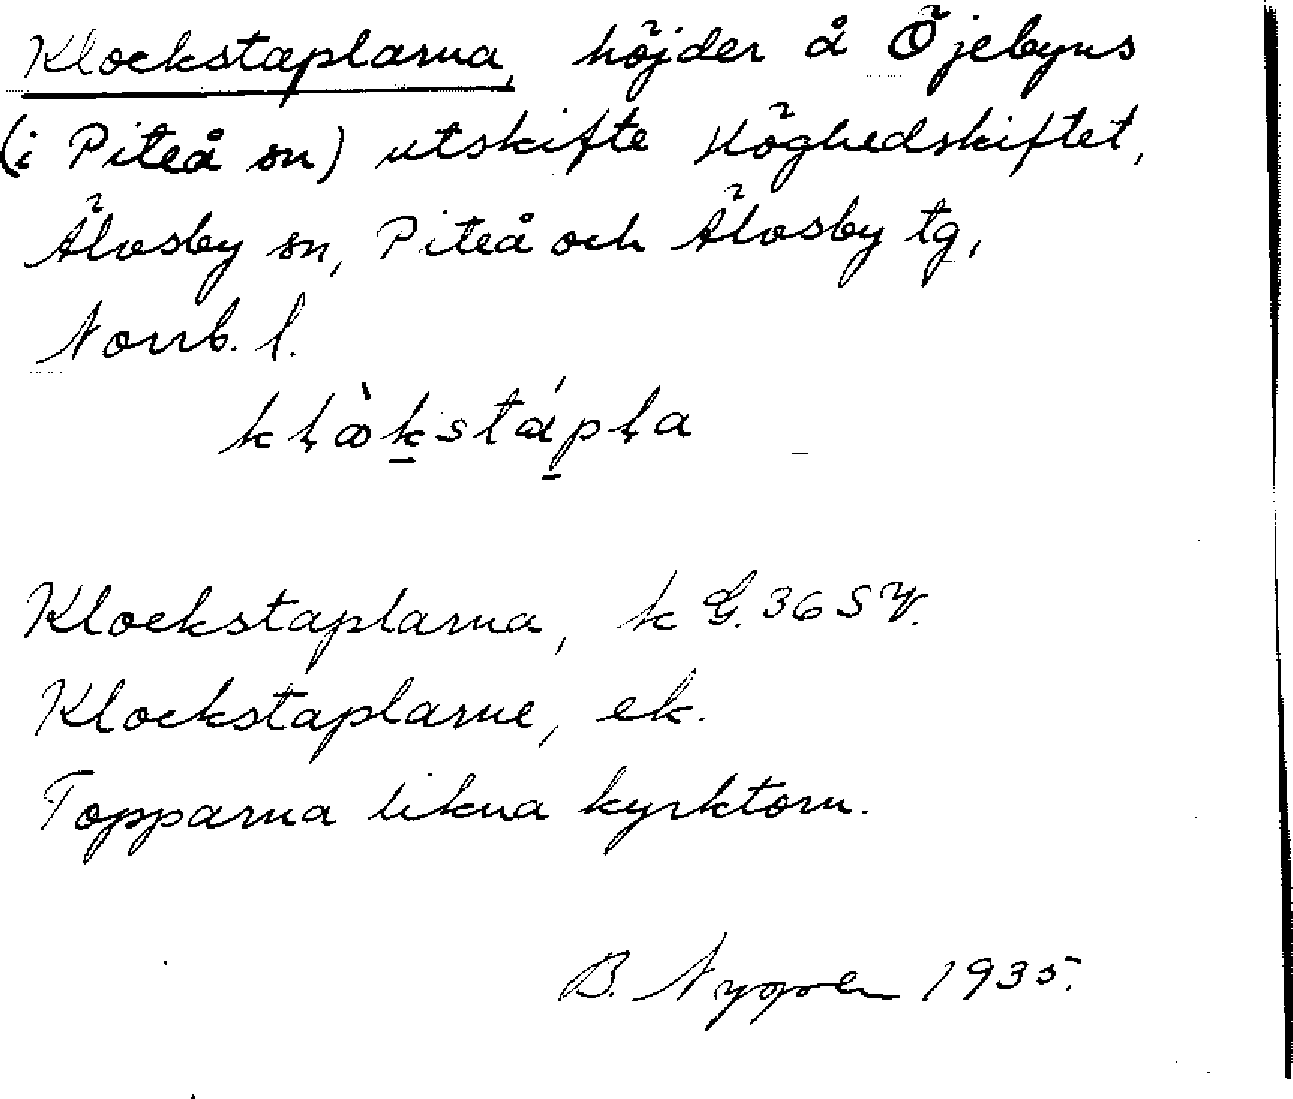 Klockstaplarna, höjder å Öjebyns
(i Piteå sn) utskifte Höghedskiftet,
Älvsby sn, Piteå och Älvsby tg,
Norrb. l.
Klockstaplarna, k G. 36 SV.
Klockstaplarne, ek.
Topparna likna kyrktorn.
B. 1935.